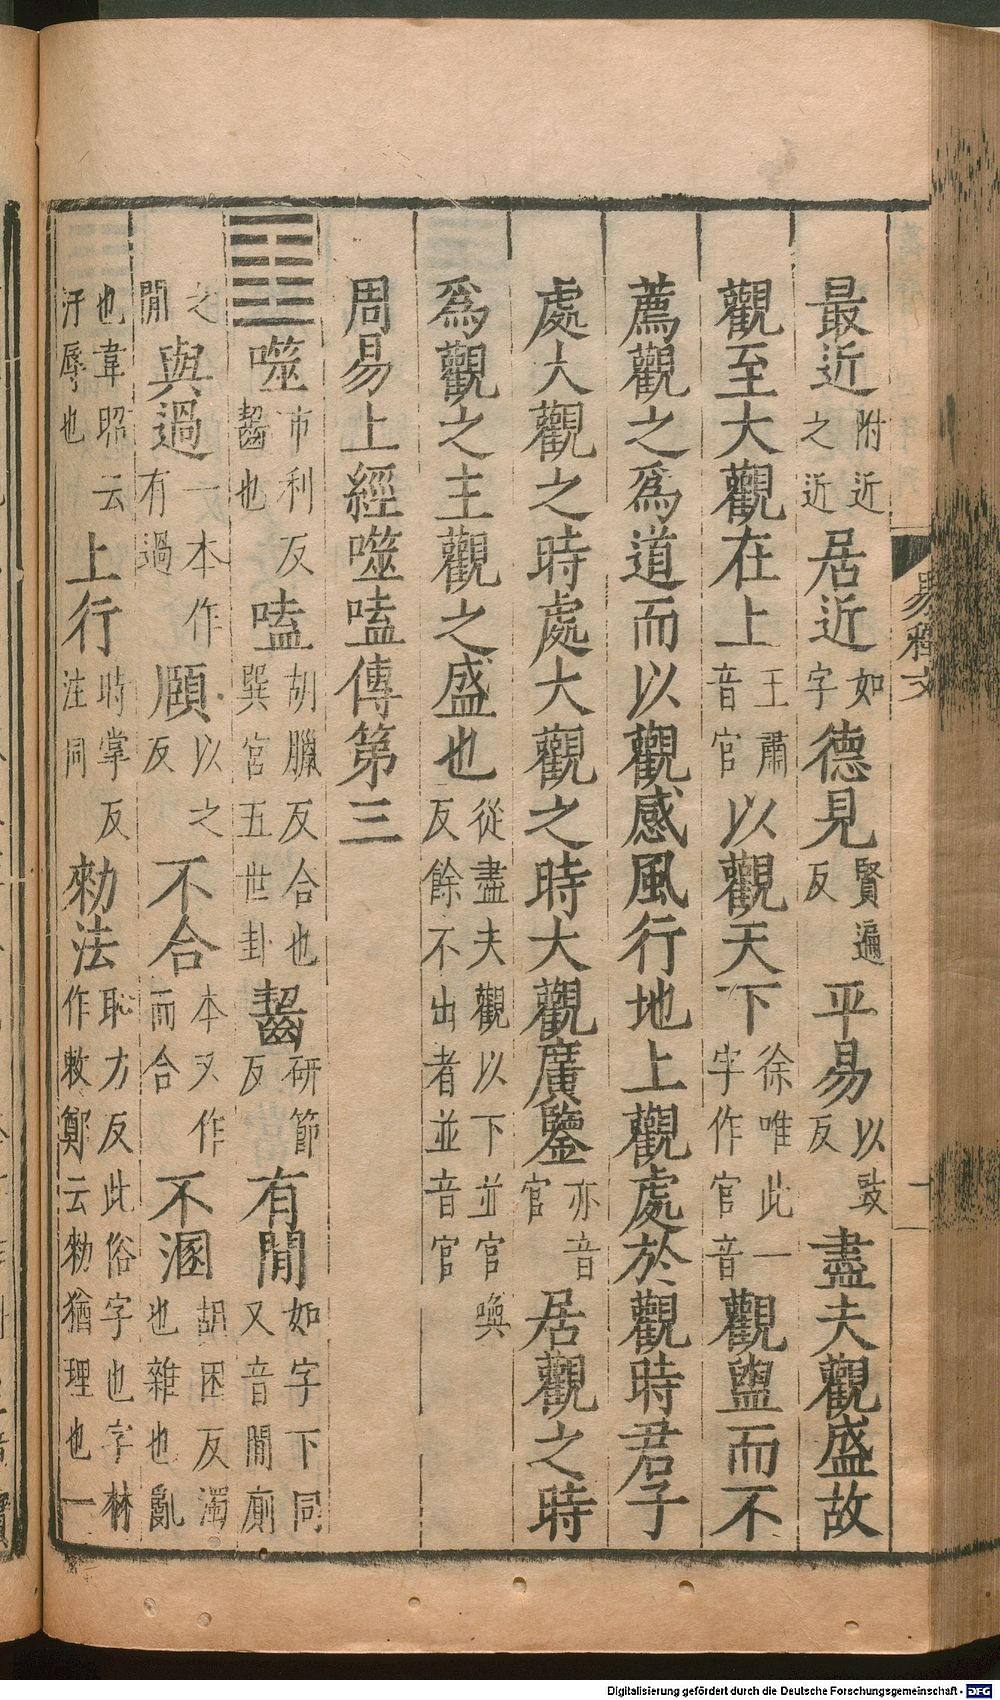 最近附近之近居近如字德見賢遍反平易以豉反盡夫觀盛故
觀至大觀在上王肅音官以觀天下徐唯此一字作官音觀盥而不
薦觀之爲道而以觀感風行地上觀處於觀時君子
處大觀之時處大觀之時大觀廣鑒亦音官居觀之時
爲觀之主觀之盛也從盡夫觀以下並官喚反餘不出者並音官
周易上經噬嗑傳第三
䷔噬市利反齧也嗑胡臘反合也巽宮五世卦齧研節反有閒如字下同又音閒廁
之閒與過一本作有過頤以之反不合本又作而合不溷胡困反濁也雜也亂
也韋昭云汙辱也上行時掌反注同勑法恥力反此俗字也字林作敕鄭云勑猶理也一
易釋文
Digitalisierung gefördert durch die Deutsche Forschungsgemeinschaft - DFG